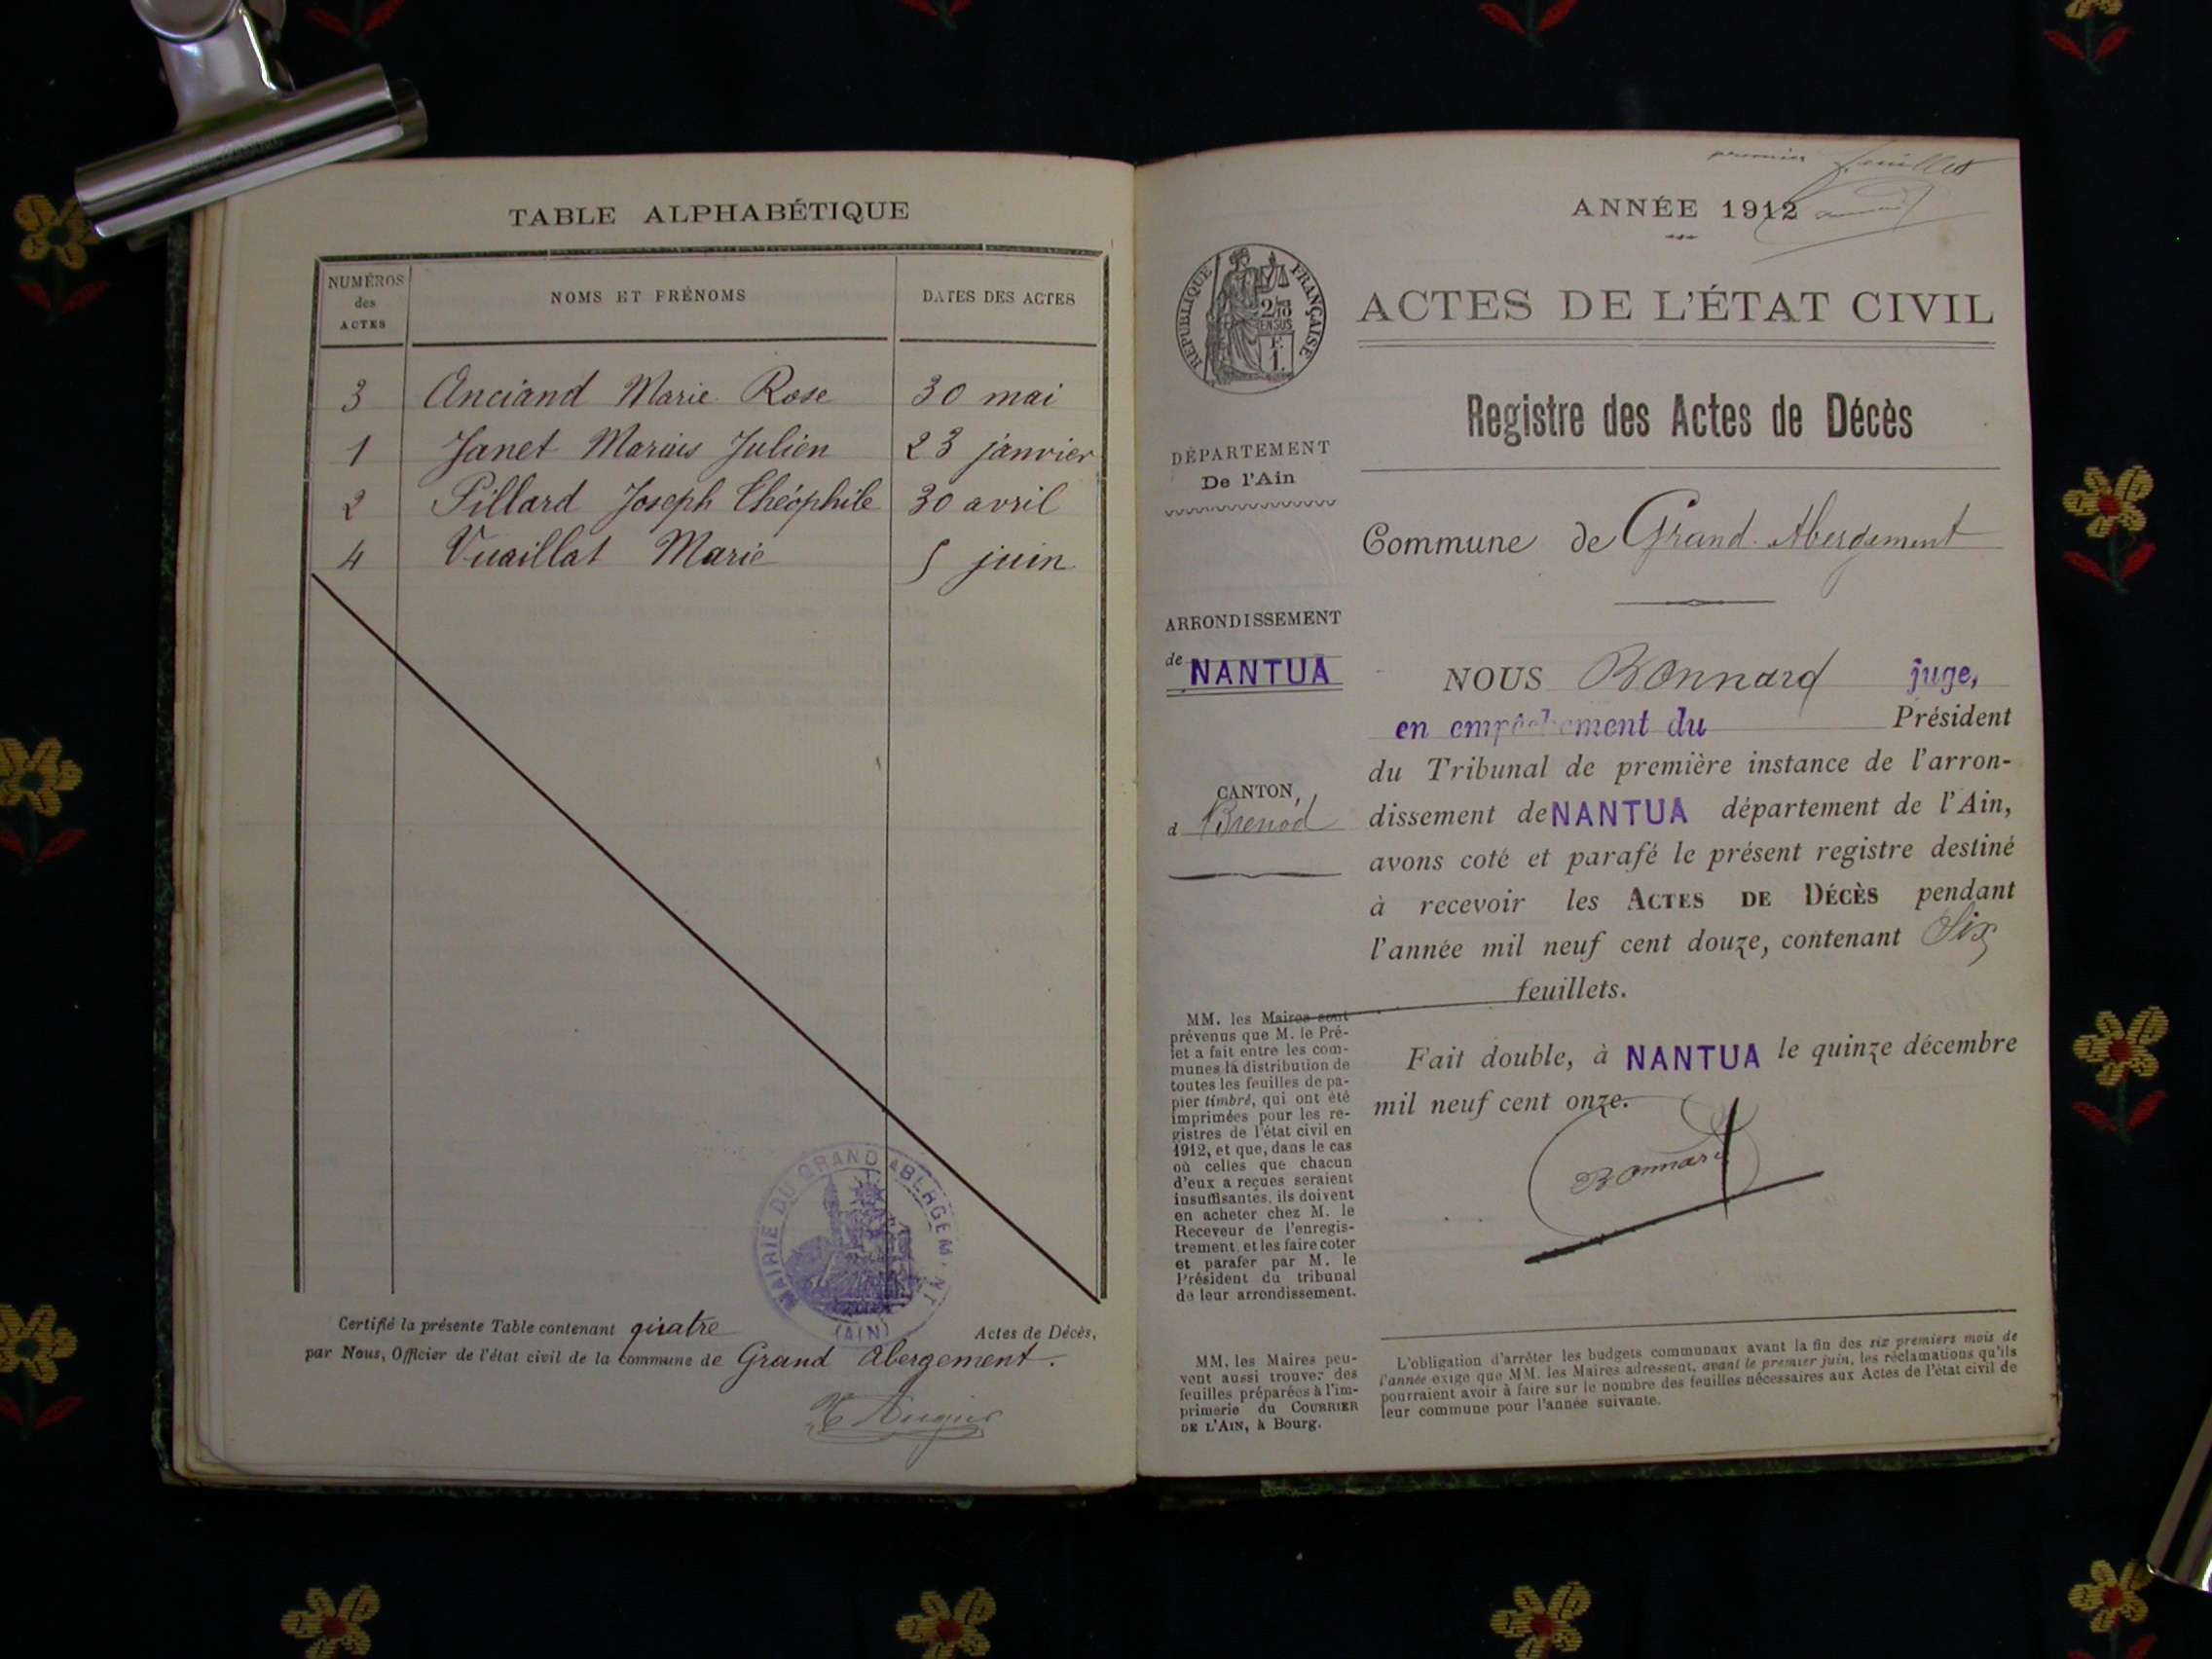 TABLE ALPHABÉTIQUE
NUMÉROS
des
ACTES
NOMS ET PRÉNOMS
DATES DES ACTES
3 Anciand Marie Rose 30 mai
1 Janet Marius Julien 23 janvier
2 Pillard Joseph Théophile 30 avril
4 Vuaillat Marie 5 juin
MAIRIE DU GRAND ABERGEM.NT
(AIN)
Certifié la présente Table contenant quatre Actes de Décès,
par Nous, Officier de l'état civil de la commune de Grand Abergement.
premier feuillet
ANNÉE 1912
RÉPUBLIQUE FRANÇAISE
2/10
EN SUS
F.
1.
ACTES DE L'ÉTAT CIVIL
Registre des Actes de Décès
DÉPARTEMENT
De l'Ain
Commune de Grand Abergement
ARRONDISSEMENT
de NANTUA
CANTON,
d Brenod
NOUS Bonnard juge,
en empêchement du Président
du Tribunal de première instance de l'arron-
dissement de NANTUA département de l'Ain,
avons coté et parafé le présent registre destiné
à recevoir les ACTES DE DÉCÈS pendant
l'année mil neuf cent douze, contenant Six
feuillets.
Fait double, à NANTUA le quinze décembre
mil neuf cent onze.
Bonnard
MM. les Maires sont
prévenus que M. le Pré-
fet a fait entre les com-
munes la distribution de
toutes les feuilles de pa-
pier timbré, qui ont été
imprimées pour les re-
gistres de l'état civil en
1912, et que, dans le cas
où celles que chacun
d'eux a reçues seraient
insuffisantes, ils doivent
en acheter chez M. le
Receveur de l'enregis-
trement et les faire coter
et parafer par M. le
Président du tribunal
de leur arrondissement.
MM. les Maires peu-
vent aussi trouver des
feuilles préparées à l'im-
primerie du COURRIER
DE L'AIN, à Bourg.
L'obligation d'arrêter les budgets communaux avant la fin des six premiers mois de
l'année exige que MM. les Maires adressent, avant le premier juin, les réclamations qu'ils
pourraient avoir à faire sur le nombre des feuilles nécessaires aux Actes de l'état civil de
leur commune pour l'année suivante.